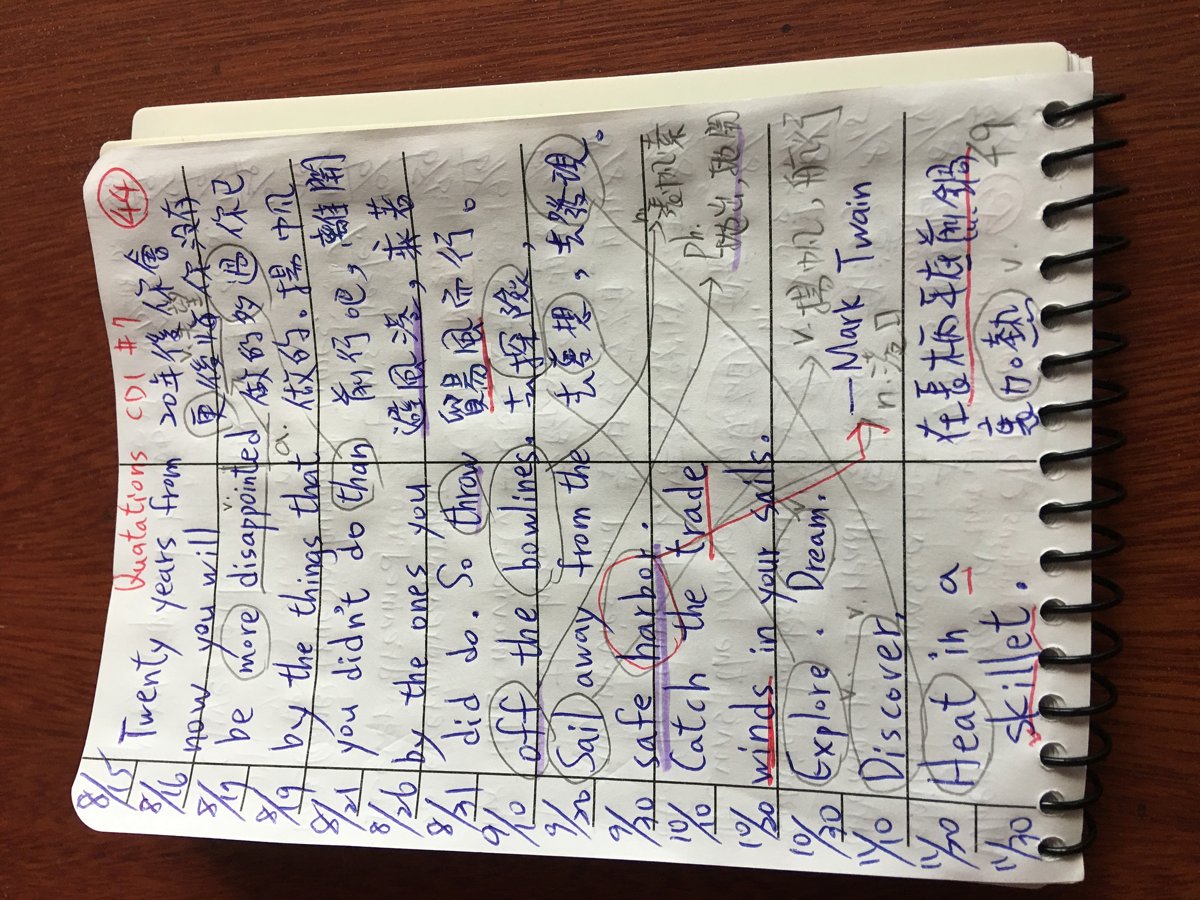 Quatations CD1 #7 44
8/15 Twenty years from 20年後你會
8/16 now you will 更後悔你沒有
8/17 be more disappointed 做的的過你已
8/19 by the things that a. 做的。揚帆
8/21 you didn't do than 前行吧，離開
8/26 by the ones you 避風港，乘著
8/31 did do. So throw 貿易風而行。
9/10 off the bowlines. 去探險，
9/20 Sail away from the 去夢想，去發現。
9/30 safe harbor. n.
10/10 Catch the trade ph.
10/20 winds in your sails.
10/30 Explore. Dream. v.揚帆，航行
11/10 Discover. —Mark Twain
n.港口
11/20 Heat in a 在長柄平底煎鍋
11/30 skillet. 裏加熱 v. 49